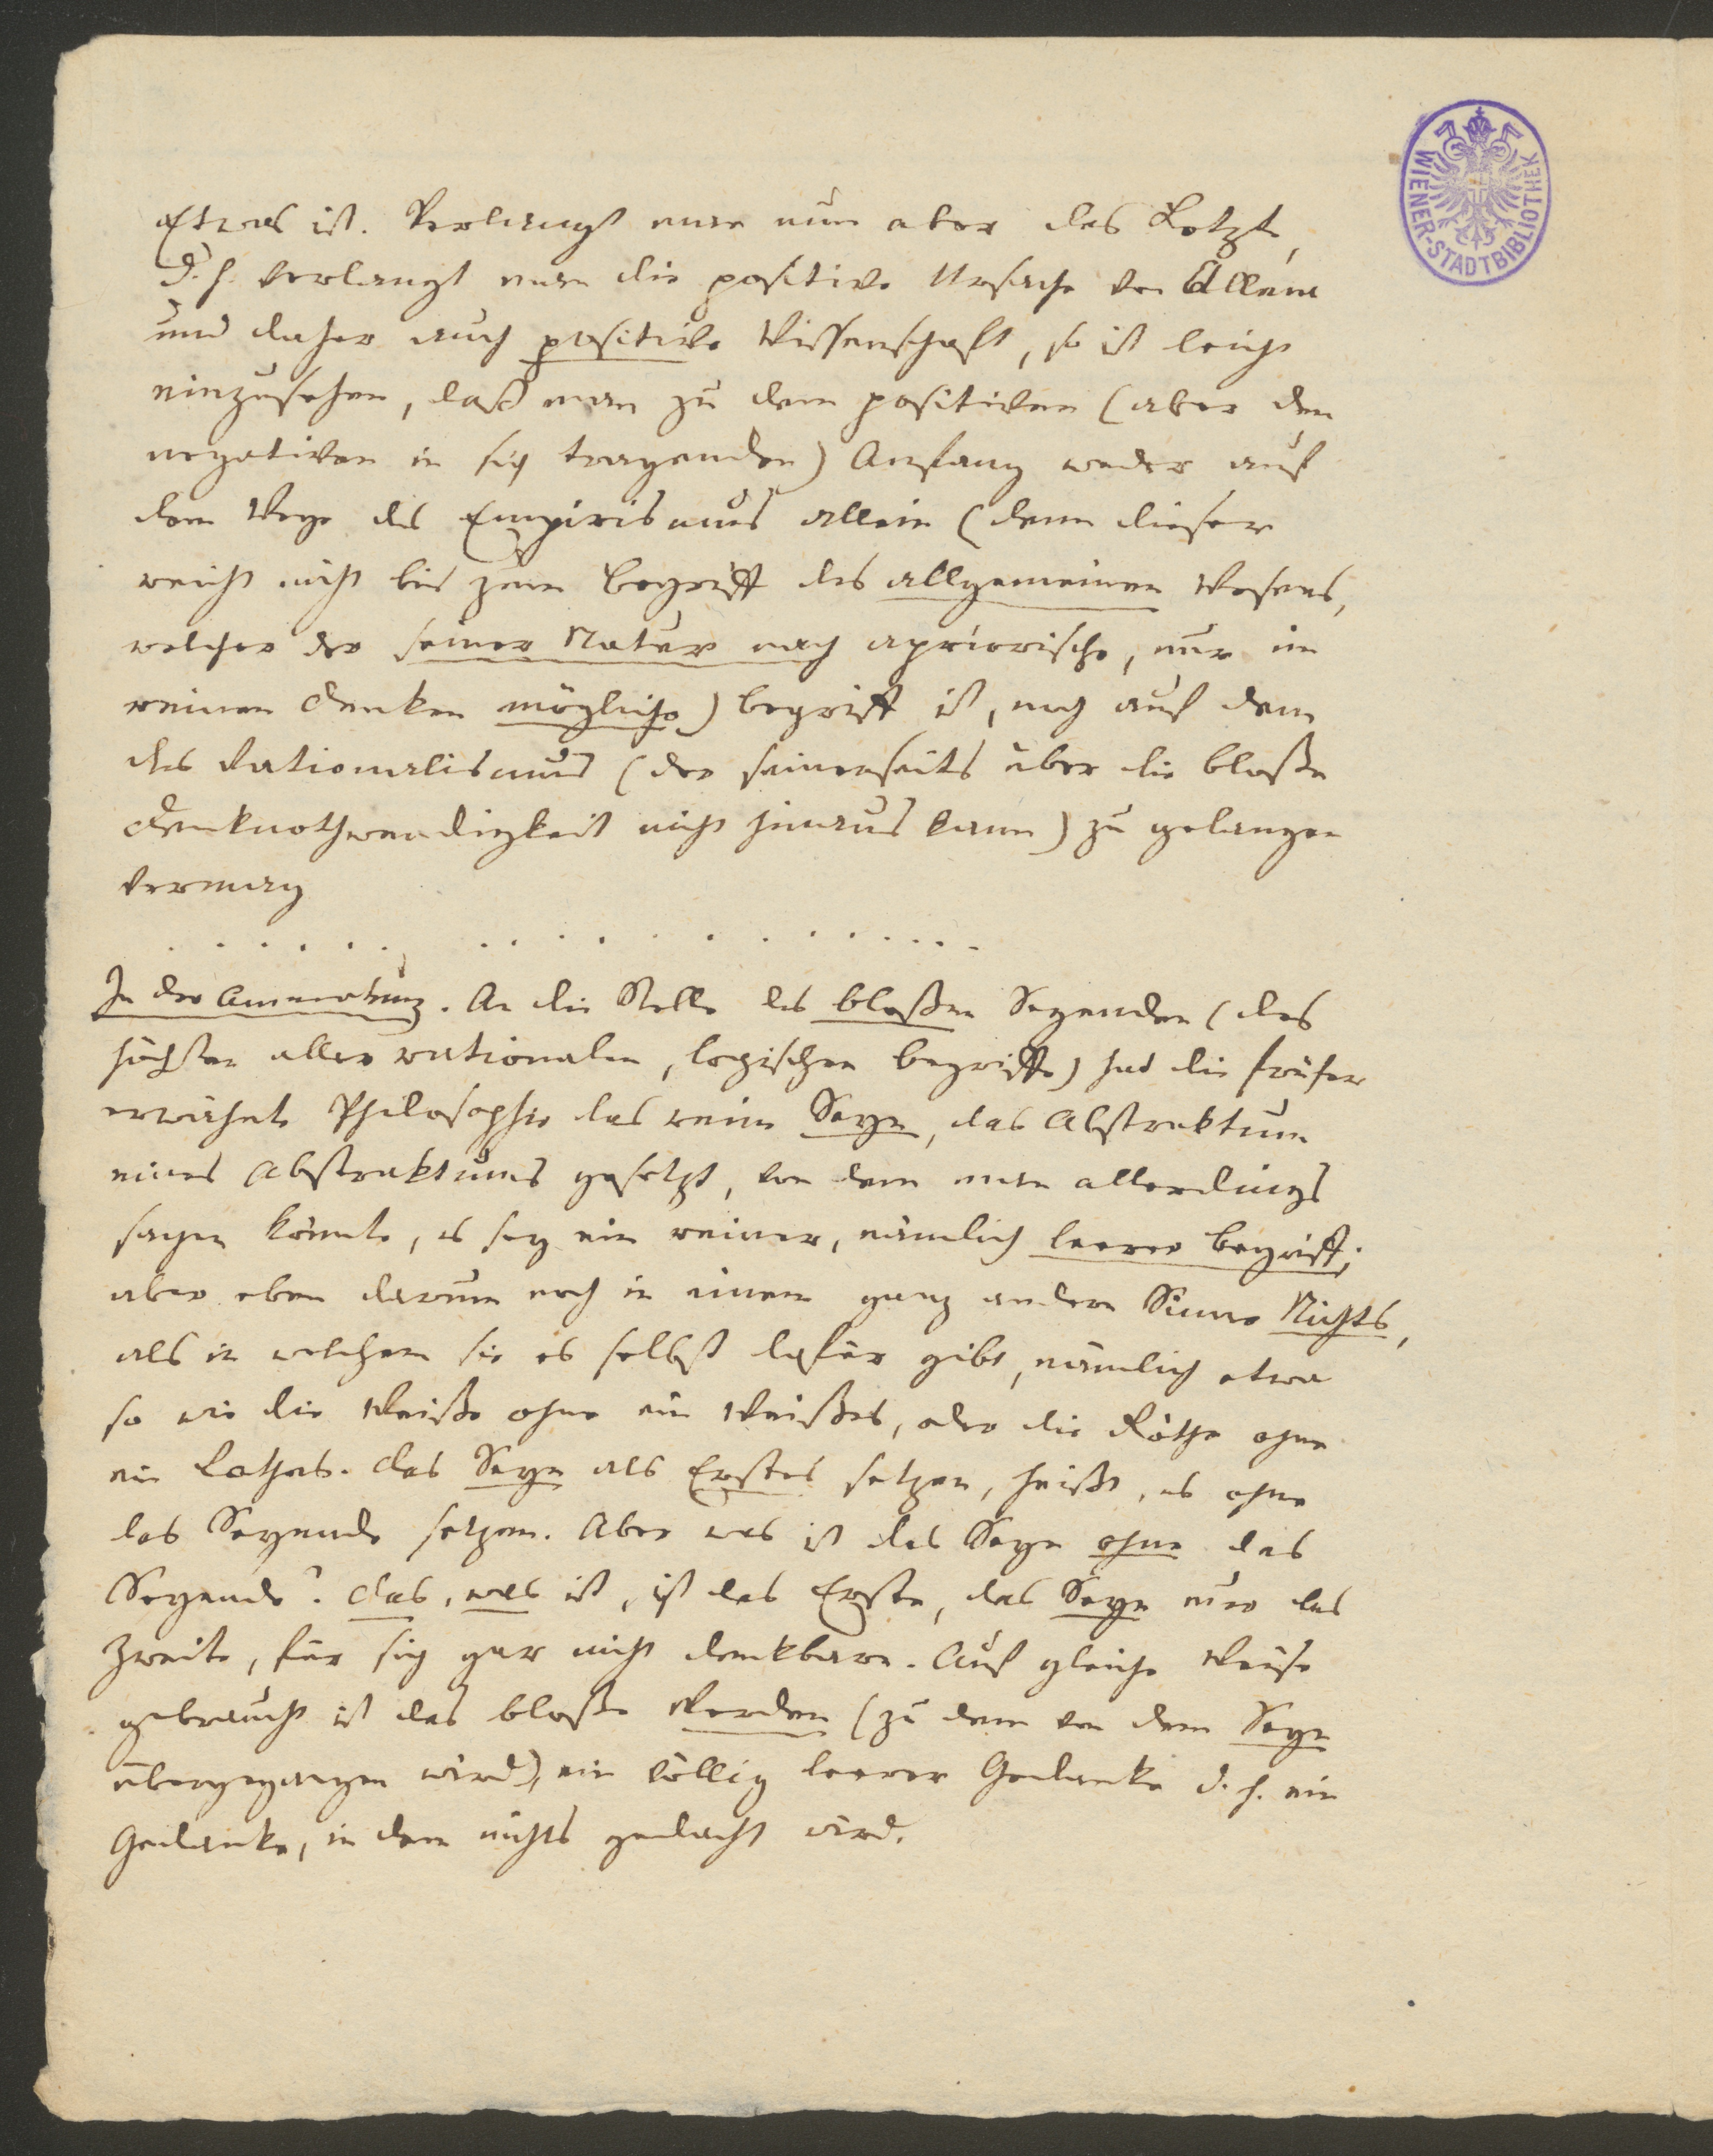 WIENER-STADTBIBLIOTHEK
Etwas ist. Verlangt man nun aber das Letzte,
d. h. verlangt man die positive Ursache von Allem
und daher auch positive Wissenschaft, so ist leicht
einzusehen, daß man zu dem positiven (aber den
negativen in sich tragenden) Anfang weder auf
dem Wege des Empirismus allein (denn dieser
reicht nicht bis zum Begriff des allgemeinen Wesens,
welcher der seiner Natur nach apriorische, nur im
reinen Denken mögliche) Begriff ist, noch auf dem
des Rationalismus (der seinerseits über die bloße
Denknothwendigkeit nicht hinaus kann) zu gelangen
vermag
. . . . . . . . . . . . . . . . . .
In der Anmerkung. An die Stelle des bloßen Seyenden (des
höchsten aller rationalen, logischen Begriffe) hat die früher
erwähnte Philosophie das reine Seyn, das Abstraktum
eines Abstraktums gesetzt, von dem man allerdings
sagen könnte, es sey ein reiner, nämlich leerer Begriff;
aber eben darum noch in einem ganz andern Sinne Nichts,
als in welchem sie es selbst dafür gibt, nämlich etwa
so wie die Weiße ohne ein Weißes, oder die Röthe ohne
ein Rothes. Das Seyn als Erstes setzen, heißt, es ohne
das Seyende setzen. Aber was ist das Seyn ohne das
Seyende? Das, was ist, ist das Erste, das Seyn nur das
Zweite, für sich gar nicht denkbare. Auf gleiche Weise
gebraucht ist das bloße Werden (zu dem von dem Seyn
übergegangen wird), ein völlig leerer Gedanke d. h. ein
Gedanke, in dem nichts gedacht wird.